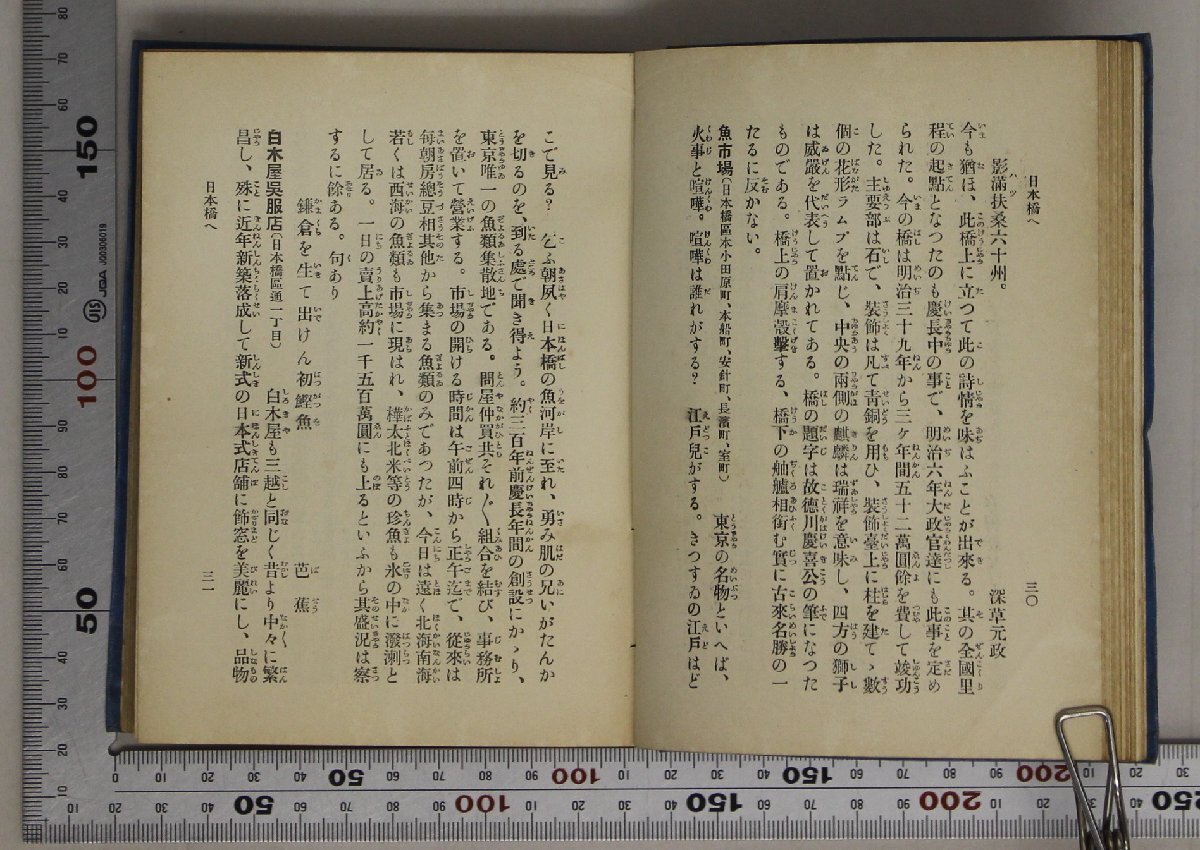 日本橋へ
三〇
影滿扶桑六十州。 深草元政
今も猶ほ、此橋上に立つて此の詩情を味はふことが出來る。其の全國里
程の起點となつたのも慶長中の事で、明治六年大政官達にも此事を定め
られた。今の橋は明治三十九年から三ケ年間五十二萬圓餘を費して竣功
した。主要部は石で、裝飾は凡て青銅を用ひ、裝飾臺上に柱を建てゝ數
個の花形ラムプを點じ、中央の兩側の麒麟は瑞祥を意味し、四方の獅子
は威嚴を代表して置かれてある。橋の題字は故德川慶喜公の筆になつた
ものである。橋上の肩摩轂擊する、橋下の舳艫相銜む實に古來名勝の一
たるに反かない。
魚市場(日本橋區本小田原町、本船町、安針町、長濱町、室町) 東京の名物といへば、
火事と喧嘩。喧嘩は誰れがする? 江戸兒がする。きつするの江戸はど
こで見る? 乞ふ朝夙く日本橋の魚河岸に至れ、勇み肌の兄いがたんか
を切るのを、到る處で聞き得よう。約三百年前慶長年間の創設にかゝり、
東京唯一の魚類集散地である。問屋仲買共それ〴〵組合を結び、事務所
を置いて營業する。市場の開ける時間は午前四時から正午迄で、從來は
每朝房總豆相其他から集まる魚類のみであつたが、今日は遠く北海南海
若くは西海の魚類も市場に現はれ、樺太北米等の珍魚も氷の中に潑溂と
して居る。一日の賣上高約一千五百萬圓にも上るといふから其盛況は察
するに餘ある。句あり
鎌倉を生て出けん初鰹魚 芭蕉
白木屋吳服店(日本橋區通一丁目) 白木屋も三越と同じく昔より中々に繁
昌し、殊に近年新築落成して新式の日本式店舗に飾窓を美麗にし、品物
日本橋へ
三一